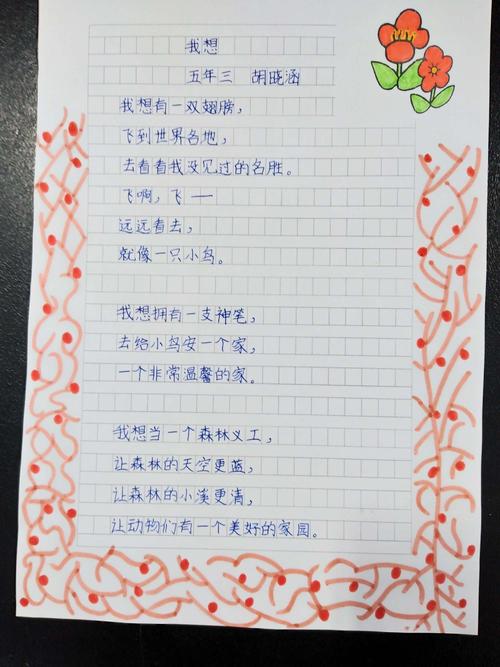 我想
五年三 胡晓涵
我想有一双翅膀，
飞到世界各地，
去看看我没见过的名胜。
飞啊，飞——
远远看去，
就像一只小鸟。
我想拥有一支神笔，
去给小鸟安一个家，
一个非常温馨的家。
我想当一个森林义工，
让森林的天空更蓝，
让森林的小溪更清，
让动物们有一个美好的家园。